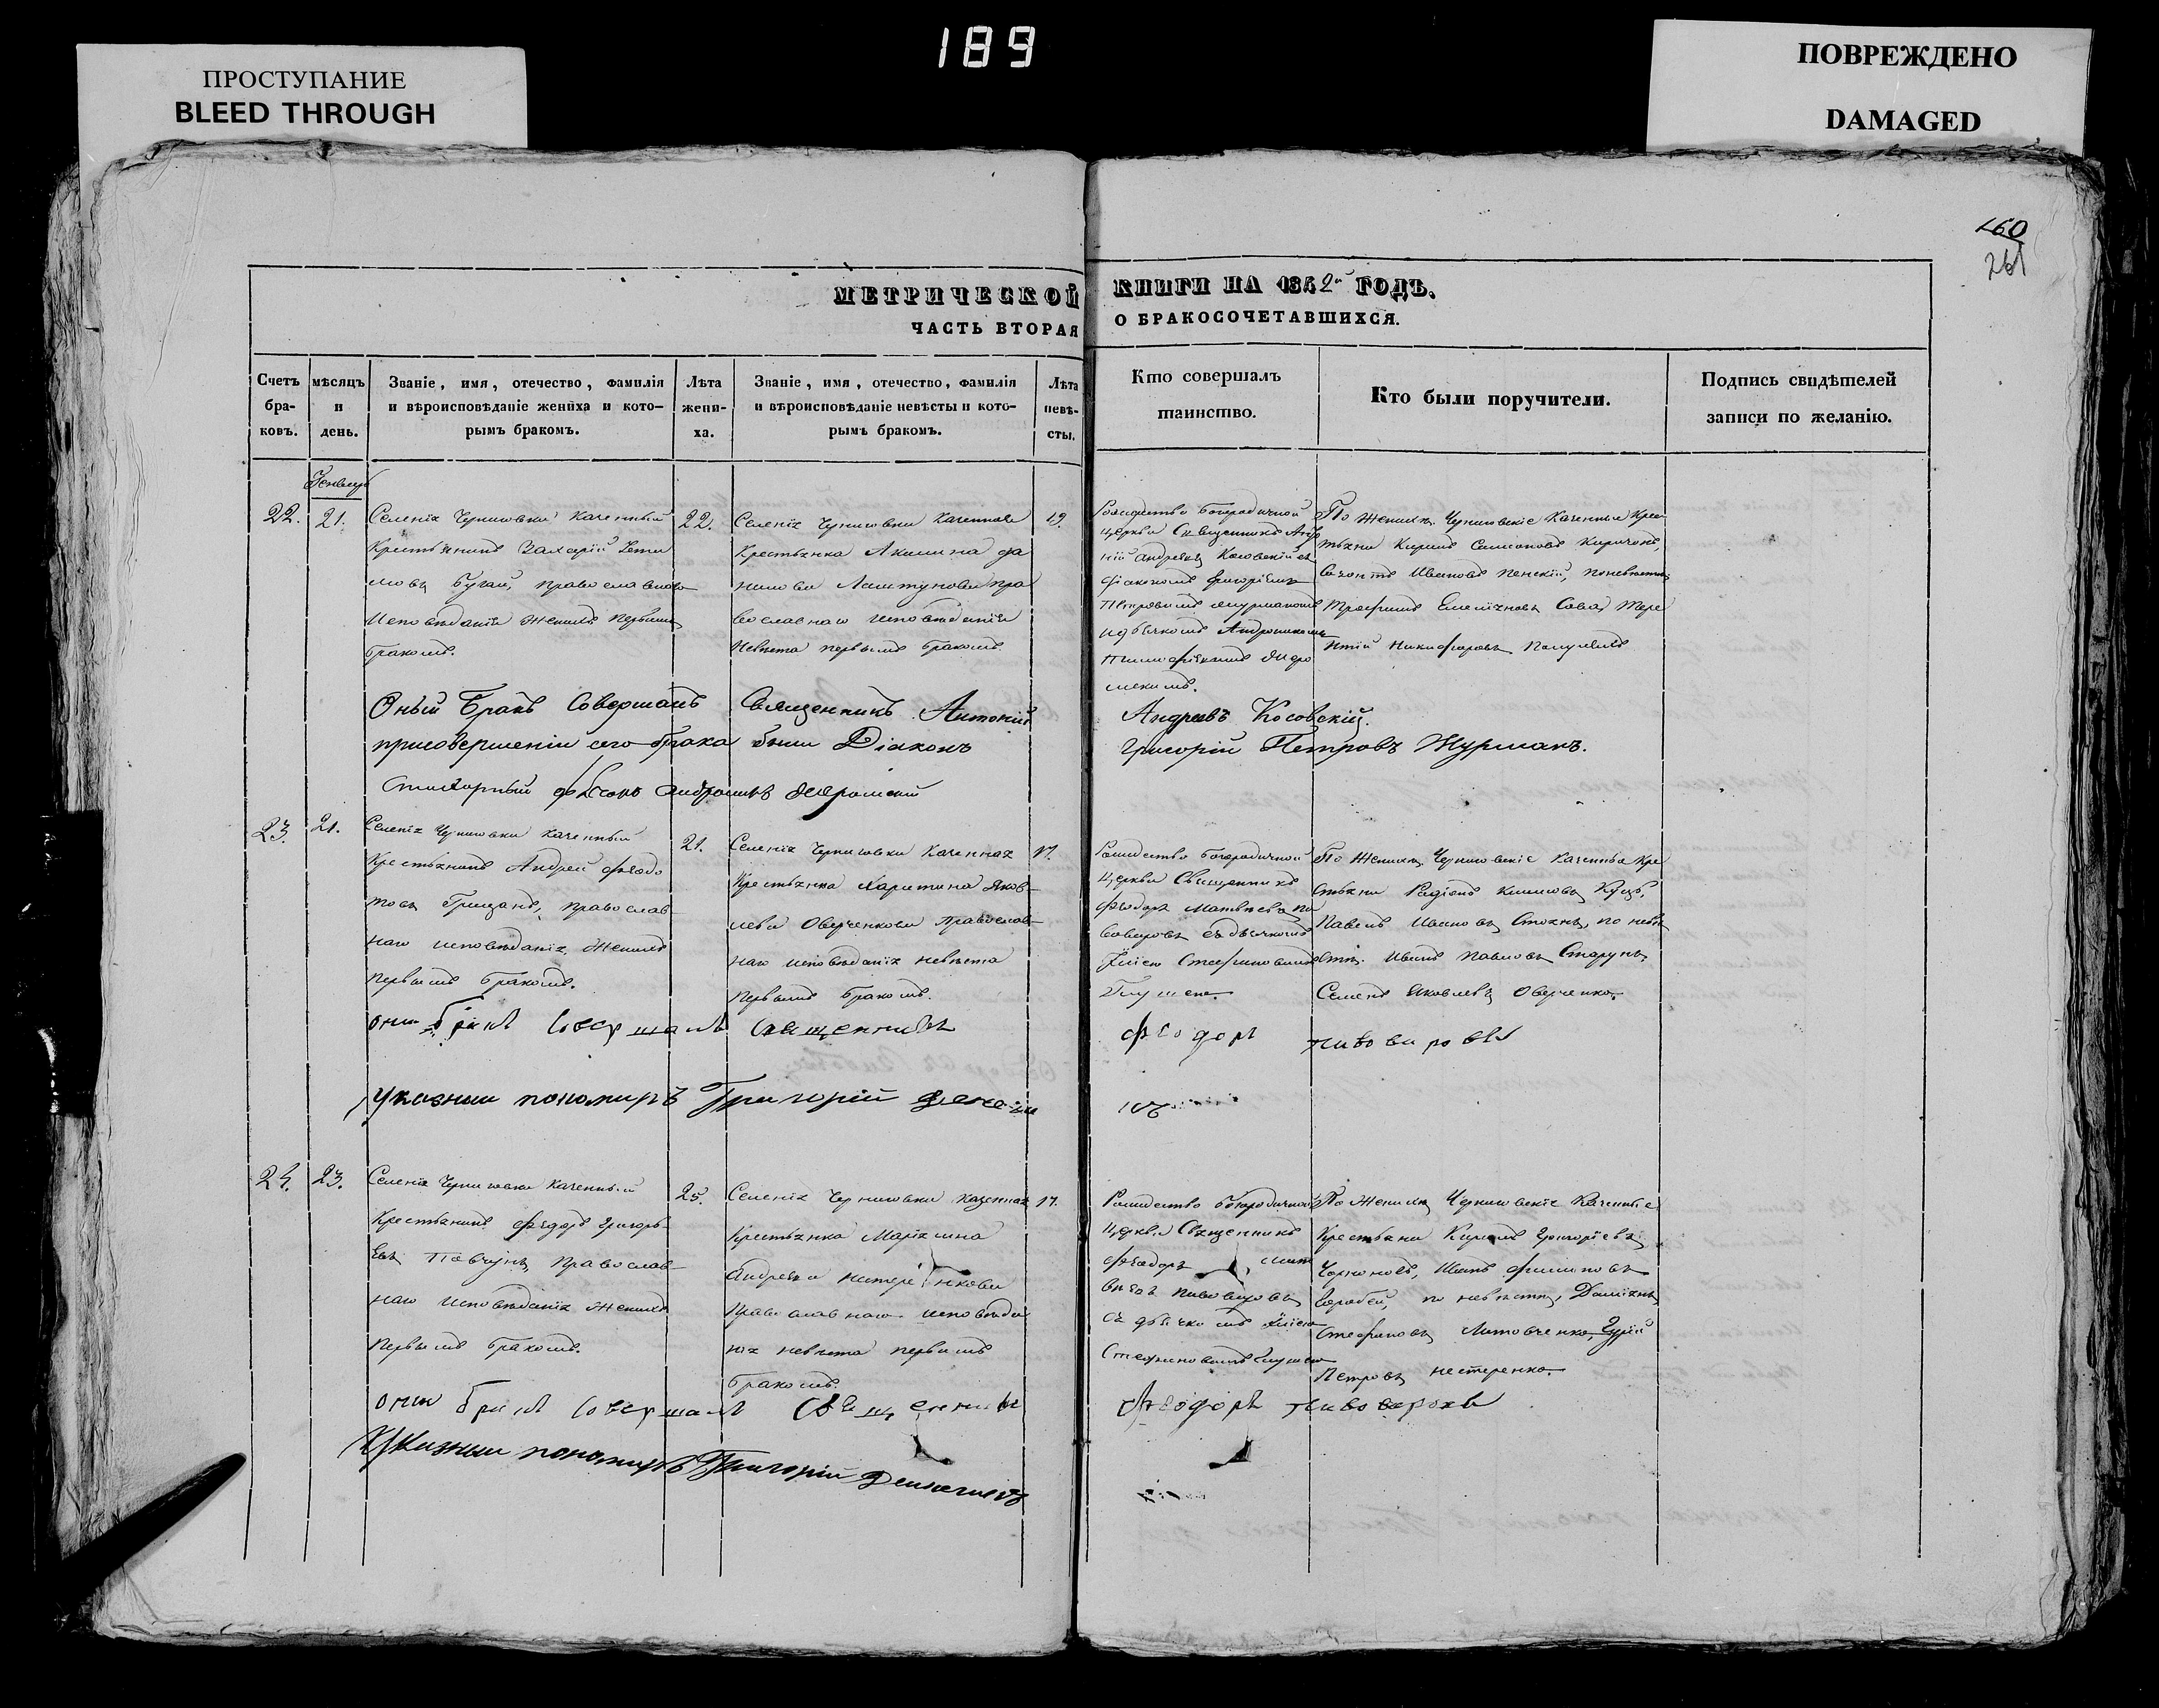 189
ПРОСТУПАНИЕ
BLEED THROUGH
ПОВРЕЖДЕНО
DAMAGED
160
261
МЕТРИЧЕСКОЙ КНИГИ НА 1842й ГОДЪ.
ЧАСТЬ ВТОРАЯ О БРАКОСОЧЕТАВШИХСЯ.
Счетъ
бра-
ковъ.
мѣсяцъ
и
день.
Званіе, имя, отечество, фамилія
и вѣроисповѣданіе жениха и кото-
рымъ бракомъ.
Лѣта
жени-
ха.
Званіе, имя, отечество, фамилія
и вѣроисповѣданіе невѣсты и кото-
рымъ бракомъ.
Лѣта
невѣ-
сты.
Кто совершалъ
таинство.
Кто были поручители.
Подпись свидѣтелей
записи по желанію.
22.
21.
Селенія Черниговки Казенный
Крестьянинъ Захарій
Бугай, православнаго
Исповѣданія Женихъ первымъ
бракомъ.
22.
Селенія Черниговки Казенная
Крестьянка Акилина Да
нилова пра
вославнаго исповѣданія
Невѣста первымъ бракомъ
19.
Рождество Богородичной
церкви Священникъ Анто
ній Андреевъ Косовскій съ
діакономъ Григоріемъ
Петровымъ Журманомъ
и дьячкомъ Андроникомъ
По Женихѣ Черниговскіе Казенные Крес
тьяне Кирилъ Кириченко,
Созонтъ Ивановъ поневѣстѣ
Трофимъ Емеліяновъ Сова, Тере
нтій Никифоровъ
Оный Бракъ Совершалъ Священникъ Антоній Андреевъ Косовскій.
присовершеніи сего брака были Діаконъ Григорій Петровъ Журманъ.
дьячокъ
23.
21.
Селенія Черниговки Казенный
Крестьянинъ Андрей Федо
товъ Грицанъ, православ
наго исповѣданія, Женихъ
первымъ бракомъ.
21.
Селенія Черниговки Казенная
Крестьянка Харитина Яков-
лева Оверченкова Православ-
наго исповѣданія невѣста
первымъ бракомъ.
17.
Рождество Богородичной
церкви Священникъ
Феодоръ Матвѣевъ Пи
воваровъ съ дьячкомъ
Стефановымъ
По Женихѣ Черниговскіе Казенные Кре
стьяне Родіонъ Климовъ Куцъ,
Павелъ Ивановъ по невѣ
стѣ. Иванъ Павловъ
Семенъ Яковлевъ Оверченко.
оный бракъ совершалъ священникъ Феодоръ пивоваровъ
указный пономарь Григорій
24.
23.
Селенія Черниговки Казенный
Крестьянинъ Федоръ Григорь-
евъ Православ
наго исповѣданія Женихъ
первымъ бракомъ.
25.
Селенія Черниговки казенная
Крестьянка Маріамна
Андреева нестеренкова
Православнаго исповѣда
нія невѣста первымъ
бракомъ.
17.
Рождество богородичной
церкви Священникъ
Феодоръ Мат
вѣевъ пивоваровъ
съ дьячкомъ
Стефановымъ
По Женихѣ Черниговскіе Казенные
Крестьяне Кирилъ Григоріевъ
Иванъ Филиповъ
Воробей, по невѣстѣ, Даміянъ
Стефановъ Литовченко, Гурій
Петровъ нестеренко.
оный бракъ совершалъ священникъ Феодоръ пивоваровъ
Указный пономарь Григорій